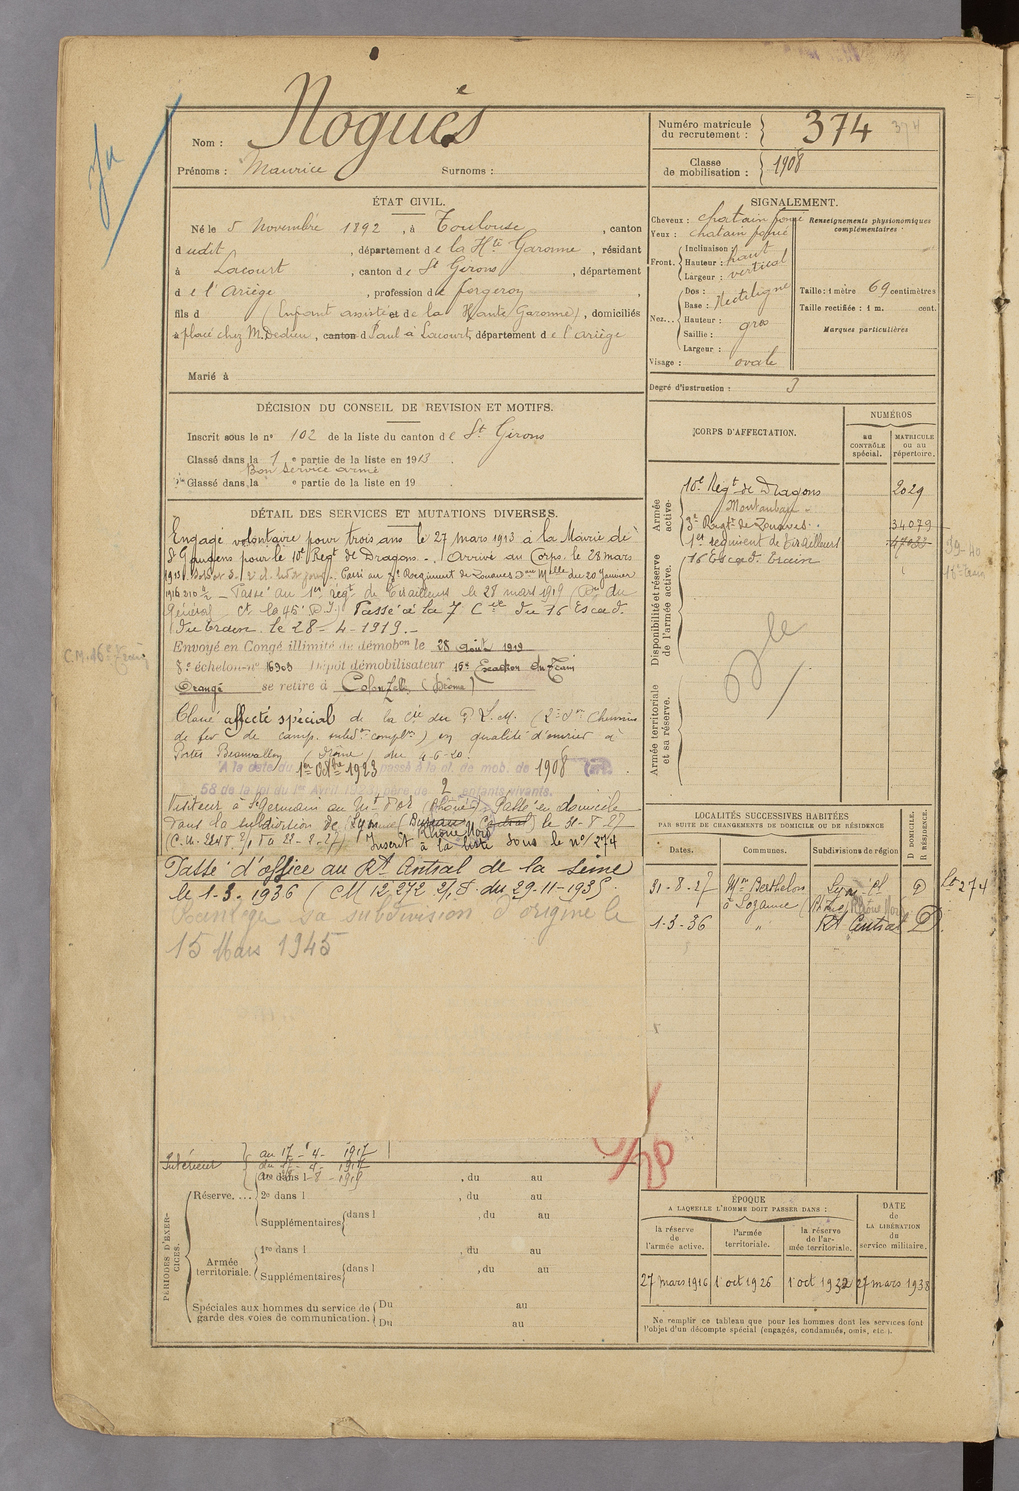 Nom : Noguès
Prénoms : Maurice Surnoms :
Numéro matricule du recrutement : 374 374
Classe de mobilisation : 1908
ÉTAT CIVIL.
Né le 5 Novembre 1892, à Toulouse, canton
dudit, département de la Hte Garonne, résidant
à Lacourt, canton de St Girons, département
de l'Ariège, profession de forgeron,
fils d (Enfant assisté et de la Haute Garonne), domiciliés
placé chez M. Dedieu, canton d Paul à Lacourt, département de l'Ariège
Marié à
SIGNALEMENT.
Cheveux : chatain foncé
Yeux : chatain foncé
Front. Inclinaison :
Hauteur : haut
Largeur : vertical
Nez... Dos :
Base : Rectiligne
Hauteur :
Saillie : gros
Largeur :
Visage : ovale
Renseignements physionomiques complémentaires :
Taille : 1 mètre 69 centimètres
Taille rectifiée : 1 m. cent.
Marques particulières
Degré d'instruction : 3
DÉCISION DU CONSEIL DE REVISION ET MOTIFS.
Inscrit sous le n° 102 de la liste du canton de St Girons
Classé dans la 1 e partie de la liste en 1913.
Bon service armé
Classé dans la e partie de la liste en 19 .
CORPS D'AFFECTATION.
NUMÉROS
au CONTRÔLE spécial.
MATRICULE ou au répertoire.
Armée active.
10e Régt de Dragons 2029
Montauban
3e Régt de Zouaves 34079
1er régiment de Tirailleurs
16 Escad. Train
Disponibilité et réserve de l'armée active.
Armée territoriale et sa réserve.
DÉTAIL DES SERVICES ET MUTATIONS DIVERSES.
Engagé volontaire pour trois ans le 27 mars 1913 à la Mairie de
St Gaudens pour le 10e Régt de Dragons. Arrivé au Corps le 28 mars
1913. Passé au 3e Régiment de Zouaves du 20 Janvier
1916 Passé au 1er régt de Tirailleurs le 28 mars 1919 du
Général Ct la 45e D.I) Passé à la 7 Cie du 16 Escad.
du train le 28-4-1919.
Envoyé en Congé illimité de démobon le 28 août 1919
8e échelon n° 16903 Dépôt démobilisateur 15e Escadron du Train
Orange se retire à Colonzelle (Drôme)
C.M. 16e Train
Classé affecté spécial de la Cie du P.L.M. (2e Son Chemins
de fer de camp. subdon complre) en qualité d'ouvrier à
Portes Beauvallon (Drôme) du 4-6-20.
A la date du 1er Octbre 1923 passé à la cl. de mob. de 1908
58 de la loi du 1er Avril 1923, père de 2 enfants vivants.
Visiteur à St Germain au Mt d'Or (Rhône) Passé en domicile
dans la subdivision de Lyon (Bureau Central) le 31-8-27
Rhône Nord
Inscrit à la liste sous le n° 274
Passé d'office au Rt Central de la Seine
le 1-3-1936 (CM 12.272 2/1 du 29-11-1935.
sa subdivision d'origine le
15 Mars 1945
LOCALITÉS SUCCESSIVES HABITÉES
PAR SUITE DE CHANGEMENTS DE DOMICILE OU DE RÉSIDENCE
Dates. Communes. Subdivisions de région D DOMICILE. R RÉSIDENCE.
31-8-27 Mon Berthelon Lyon D Lte 274
à Lozanne Rhône Nord
1-3-36 " Rt Central D.
Intérieur
au 17-4-1917
PÉRIODES D'EXERCICES.
Réserve. ... 1re dans l , du au
2e dans l , du au
Supplémentaires dans l , du au
Armée territoriale. 1re dans l , du au
Supplémentaires dans l , du au
Spéciales aux hommes du service de garde des voies de communication. Du au
Du au
ÉPOQUE
A LAQUELLE L'HOMME DOIT PASSER DANS :
la réserve de l'armée active.
l'armée territoriale.
la réserve de l'armée territoriale.
DATE de LA LIBÉRATION du service militaire.
27 mars 1916 1 oct 1926 1 oct 1932 27 mars 1938
Ne remplir ce tableau que pour les hommes dont les services font
l'objet d'un décompte spécial (engagés, condamnés, omis, etc.).